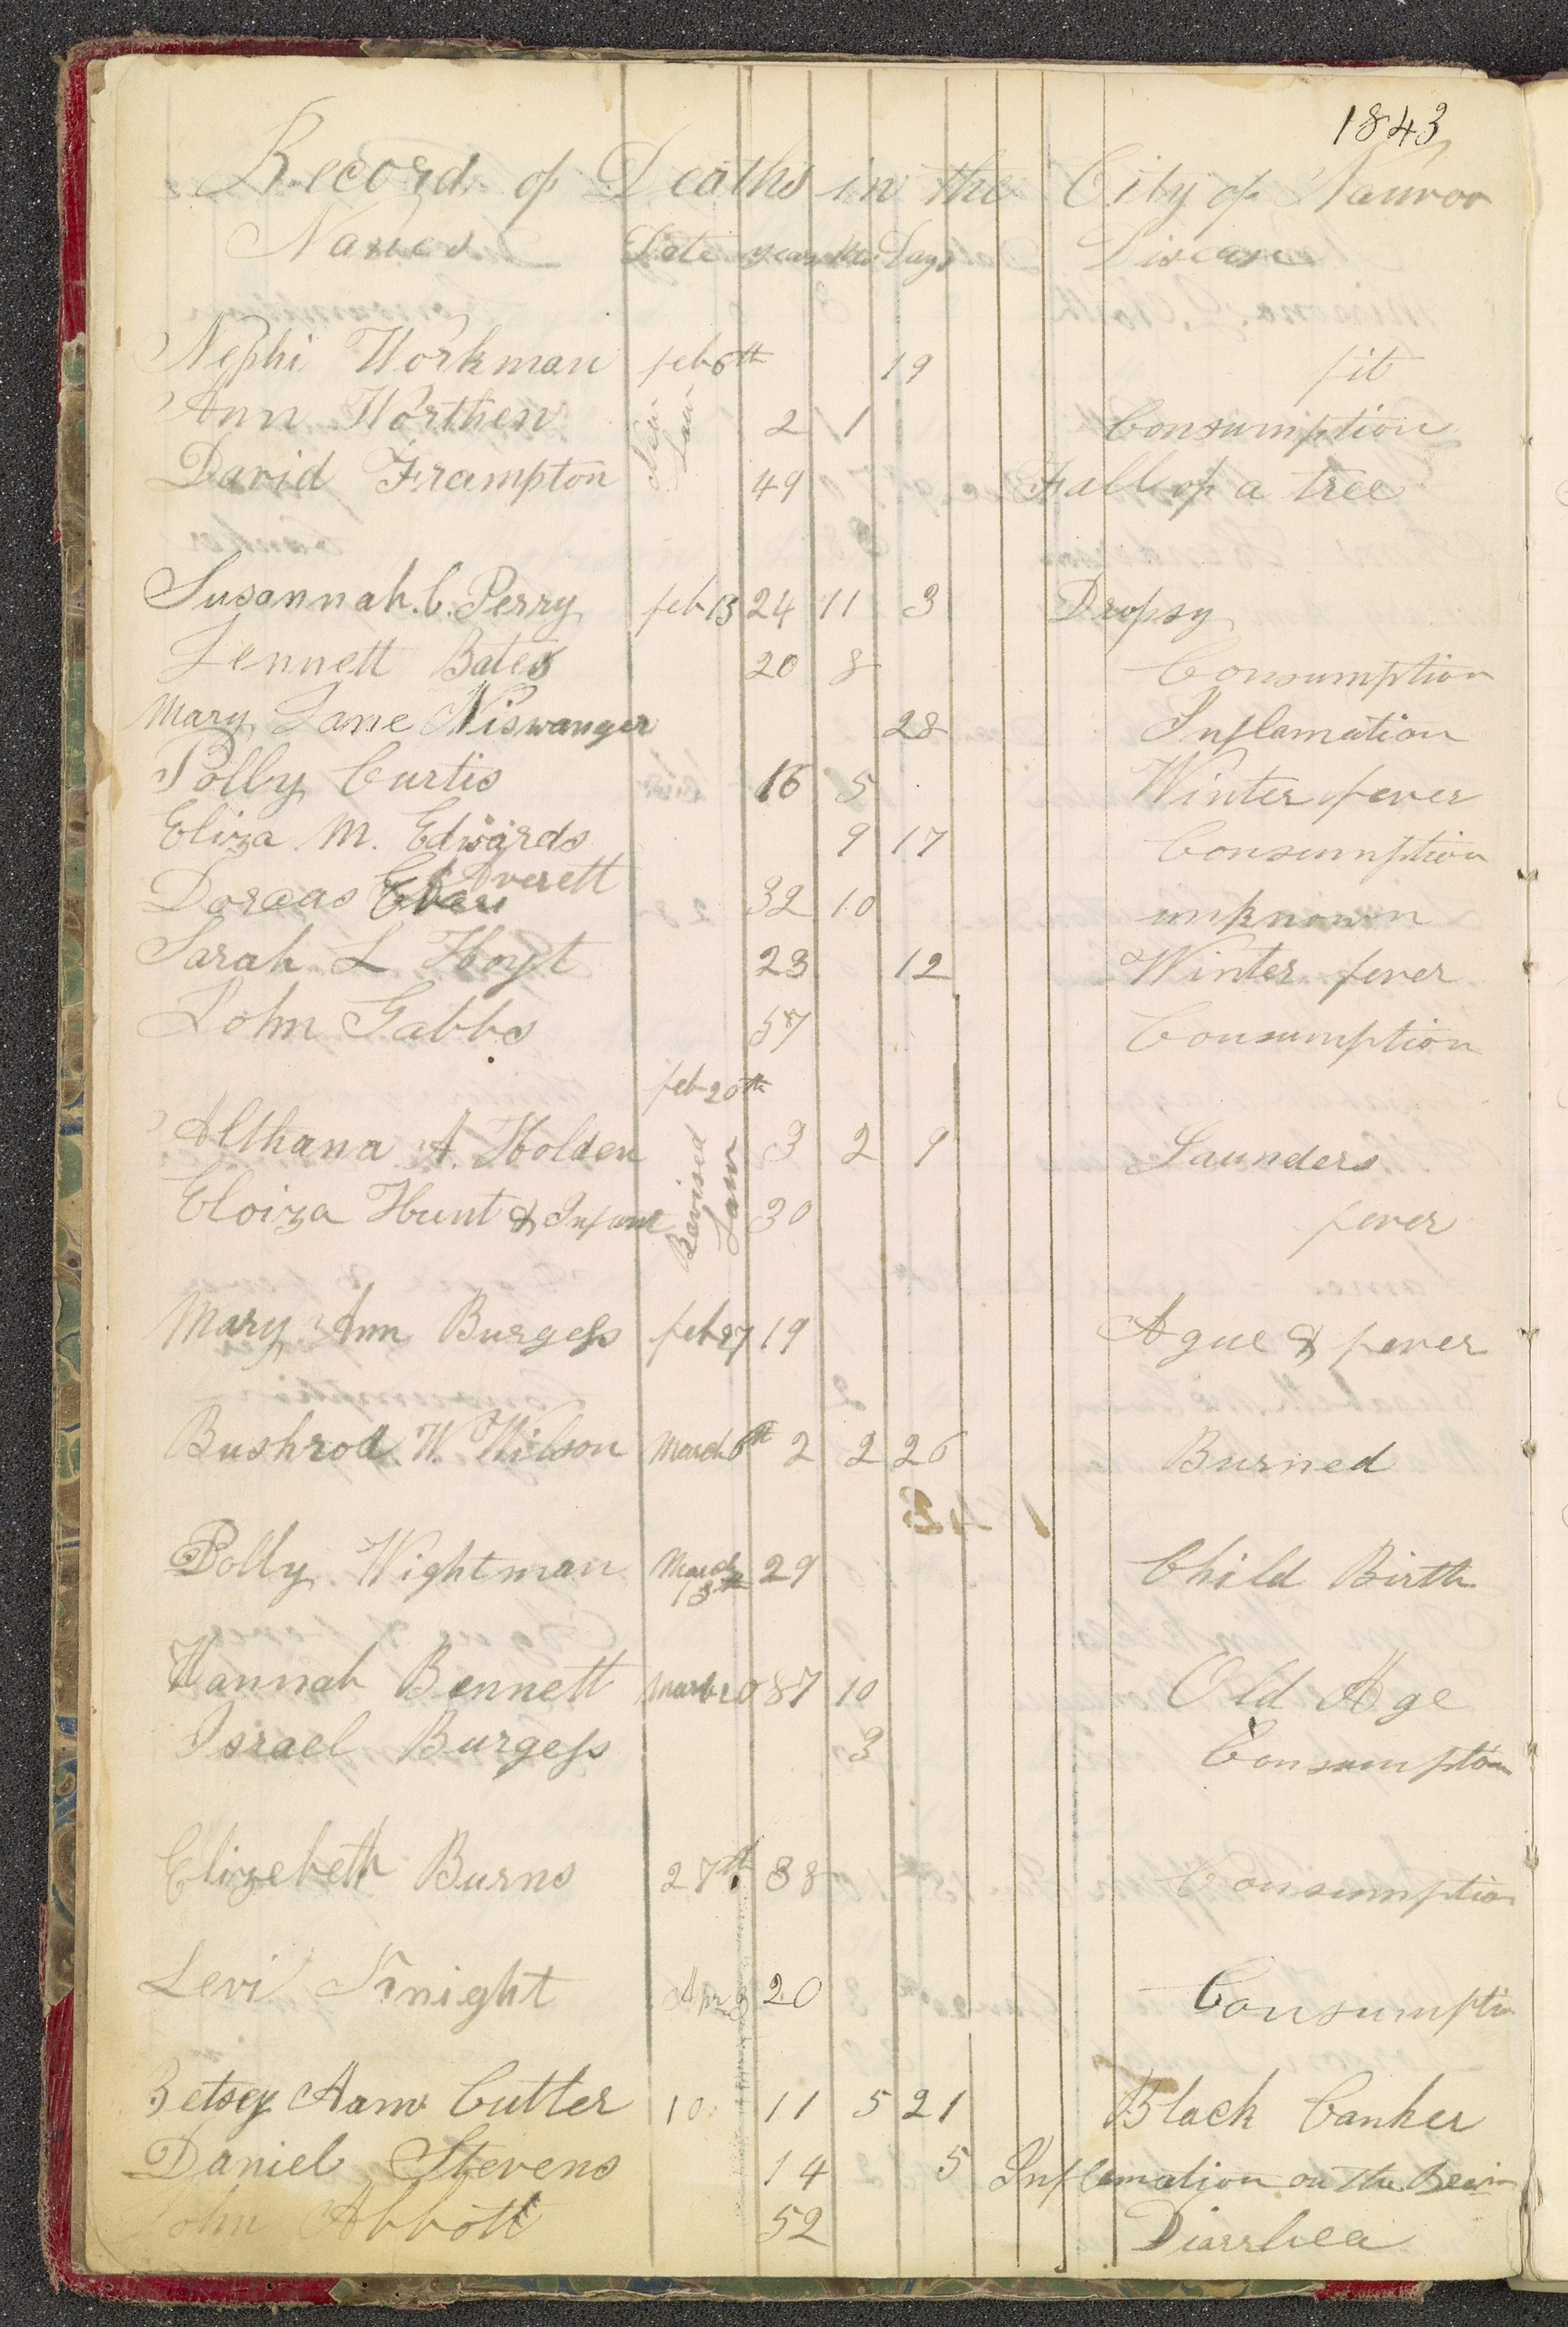 1843
Record of Deaths in the City of Nauvoo
Names Date years Mo Days Disease
Nephi Workman feb 6th 19 fit
Ann Worthen 2 1 Consumption
David Frampton 49 Fall of a tree
Susannah. C. Perry feb 13 24 11 3 Dropsy
Jennett Bates 20 8 Consumption
Mary Jane Niswanger 28 Inflamation
Polly Curtis 16 5 Winter fever
Eliza M. Edwards 9 17 Consumption
Averett
Dorcas 32 10 unknown
Sarah L Hoyt 23 12 Winter fever
John Gabbs 57 Consumption
feb 20th
Althana A. Holden 3 2 9 Jaunders
Eloiza Hunt & Infant 30 fever
Revised Law
Mary Ann Burgess feb 27 19 Ague & fever
Bushrod. W. Wilson March 6th 2 2 26 Burned
Polly Wightman March 13th 29 Child Birth
Hannah Bennett March 20 87 10 Old Age
Israel Burgess 3 Consumption
Elizebeth Burns 27th 38 Consumption
Levi Knight Apr 3 20 Consumptio
Betsey Ann Cutter 10 11 5 21 Black Canker
Daniel Stevens 14 5 Inflamation on the Brain
John Abbott 52 Diarrhea